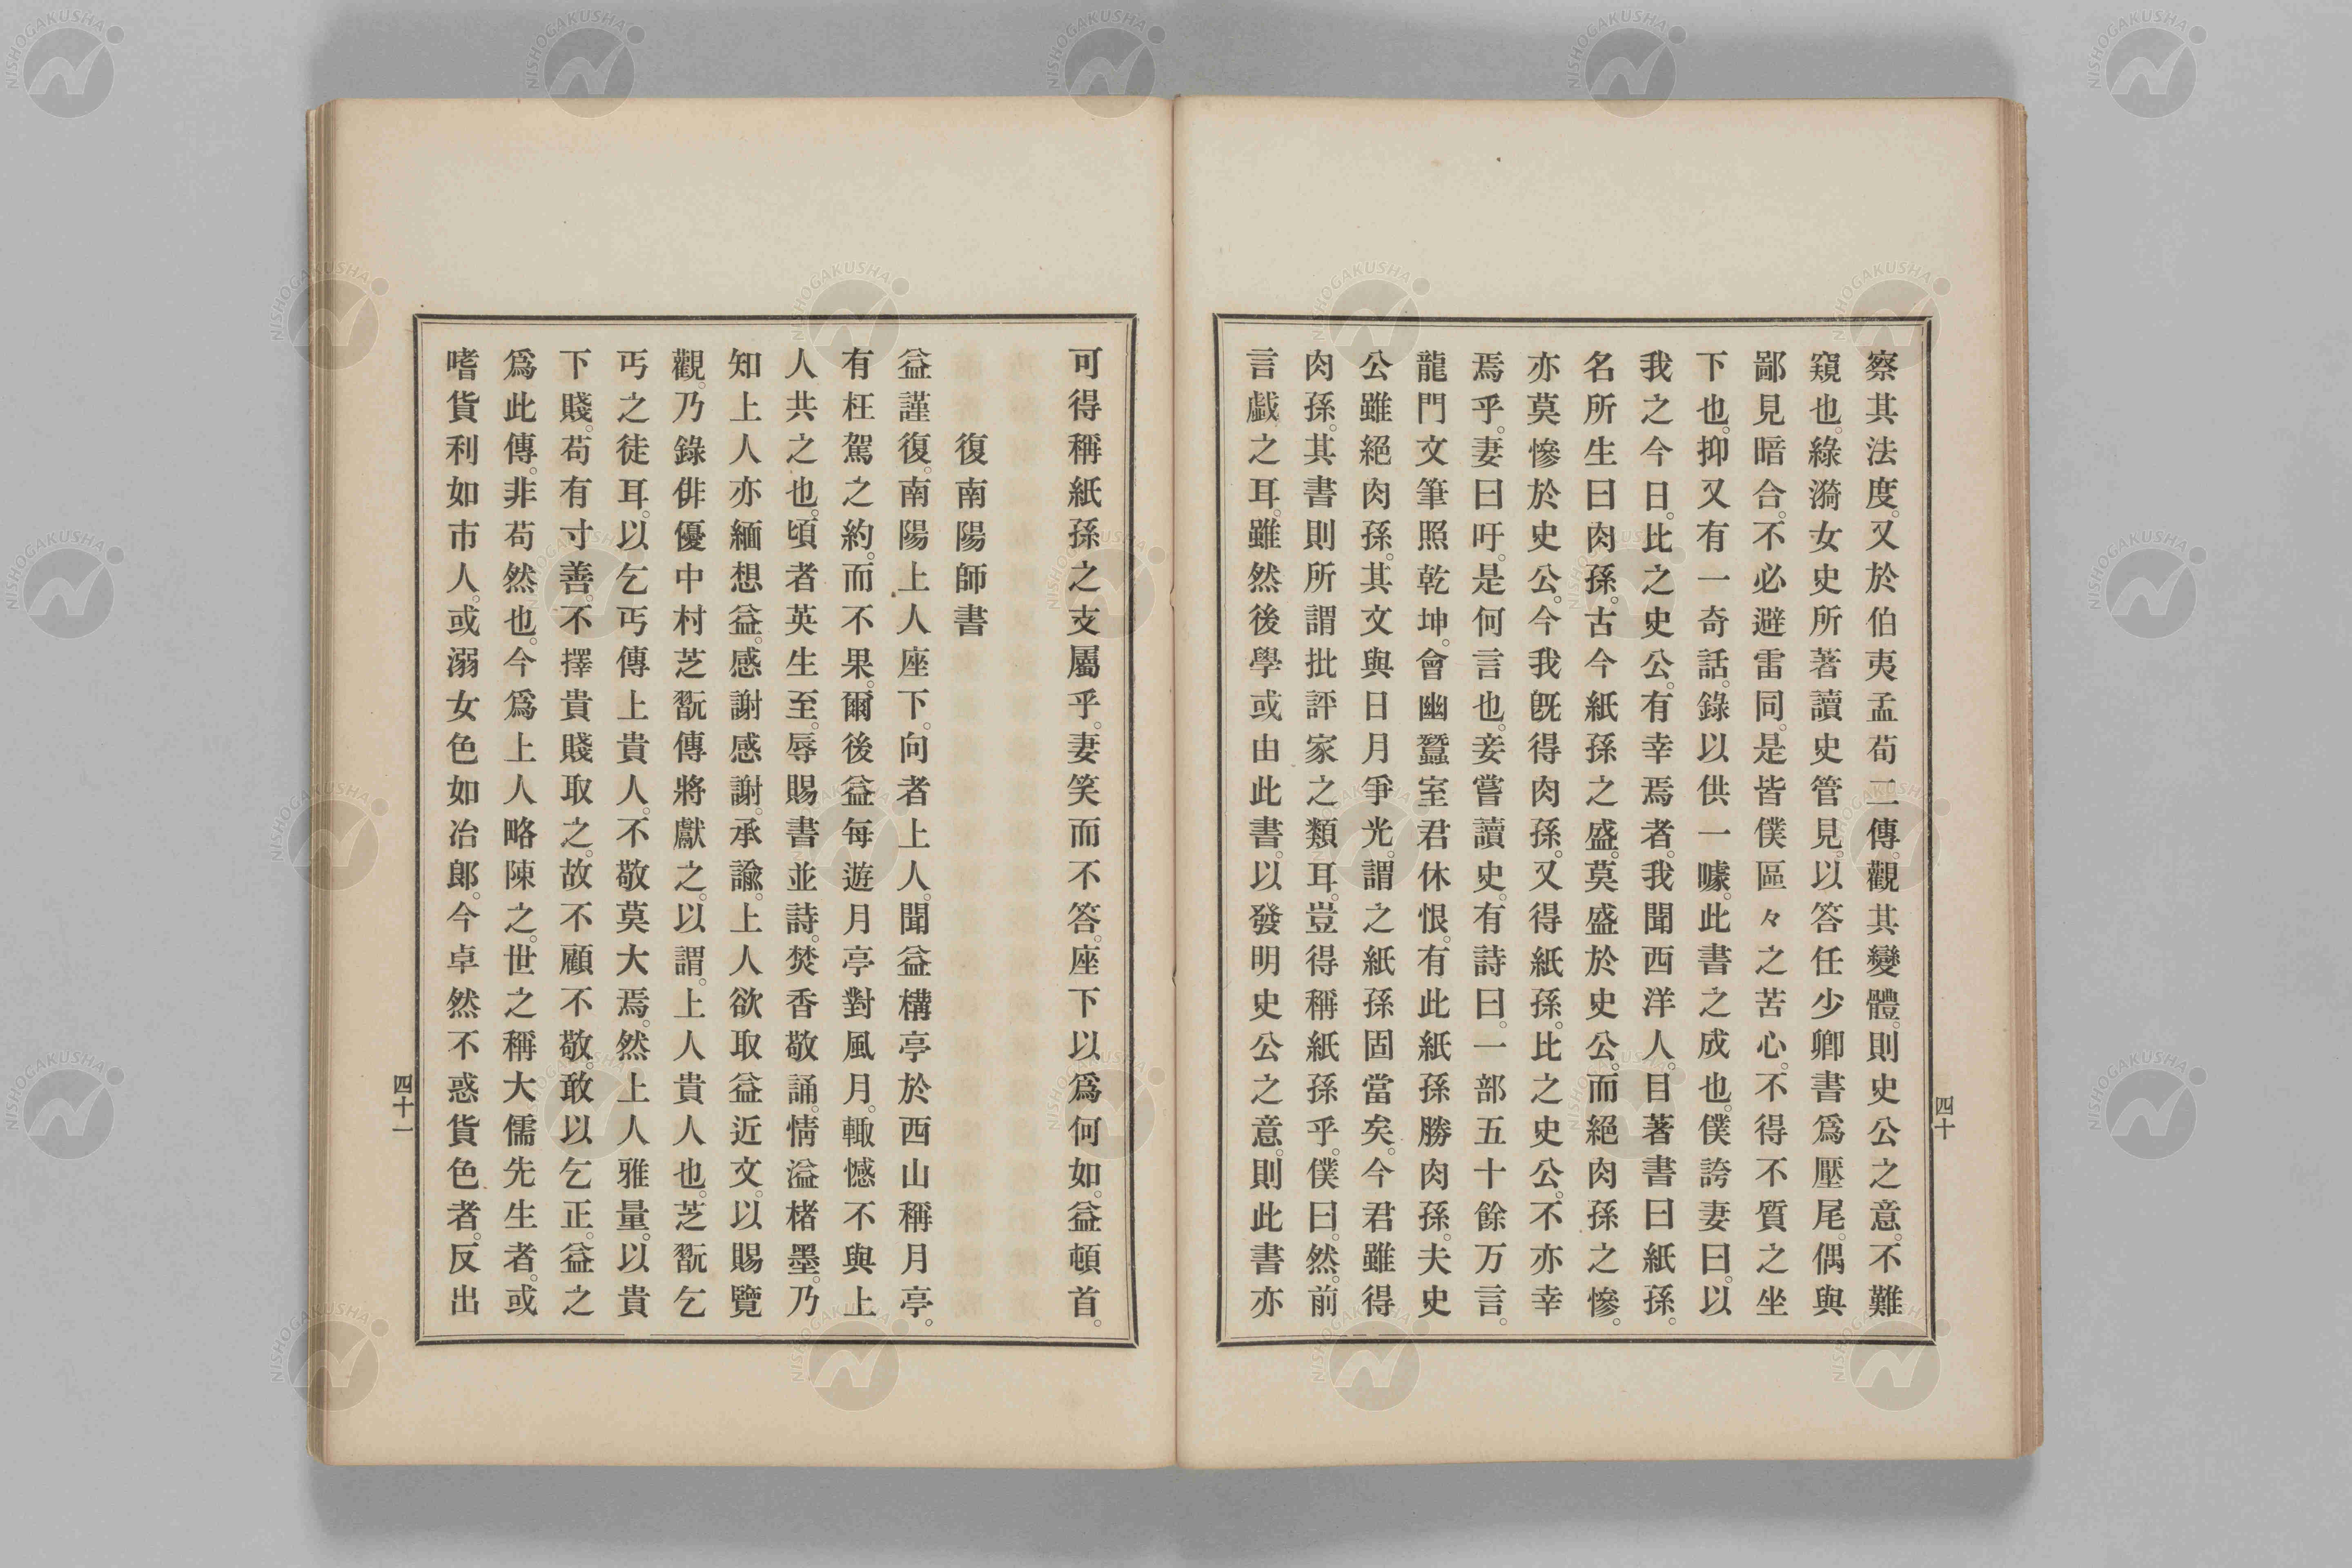 察其法度。又於伯夷孟荀二傳。觀其變體。則史公之意。不難
窺也。綠漪女史所著讀史管見。以答任少卿書爲壓尾。偶與
鄙見暗合。不必避雷同。是皆僕區々之苦心。不得不質之坐
下也。抑又有一奇話。錄以供一噱。此書之成也。僕誇妻曰。以
我之今日。比之史公。有幸焉者。我聞西洋人。目著書曰紙孫。
名所生曰肉孫。古今紙孫之盛。莫盛於史公。而絕肉孫之慘。
亦莫慘於史公。今我既得肉孫。又得紙孫。比之史公。不亦幸
焉乎。妻曰吁。是何言也。妾嘗讀史。有詩曰。一部五十餘万言。
龍門文筆照乾坤。會幽蠶室君休恨。有此紙孫勝肉孫。夫史
公雖絕肉孫。其文與日月爭光。謂之紙孫固當矣。今君雖得
肉孫。其書則所謂批評家之類耳。豈得稱紙孫乎。僕曰。然。前
言戲之耳。雖然後學或由此書。以發明史公之意。則此書亦
四十
可得稱紙孫之支屬乎。妻笑而不答。座下以爲何如。益頓首。
復南陽師書
益謹復。南陽上人座下。向者上人。聞益構亭於西山稱月亭。
有枉駕之約。而不果。爾後益每遊月亭對風月。輙憾不與上
人共之也。頃者英生至。辱賜書並詩。焚香敬誦。情溢楮墨。乃
知上人亦緬想益。感謝感謝。承諭。上人欲取益近文。以賜覽
觀。乃錄俳優中村芝翫傳將獻之。以謂。上人貴人也。芝翫乞
丐之徒耳。以乞丐傳上貴人。不敬莫大焉。然上人雅量。以貴
下賤。苟有寸善。不擇貴賤取之。故不顧不敬。敢以乞正。益之
爲此傳。非苟然也。今爲上人略陳之。世之稱大儒先生者。或
嗜貨利如市人。或溺女色如冶郎。今卓然不惑貨色者。反出
四十一
NISHOGAKUSHA